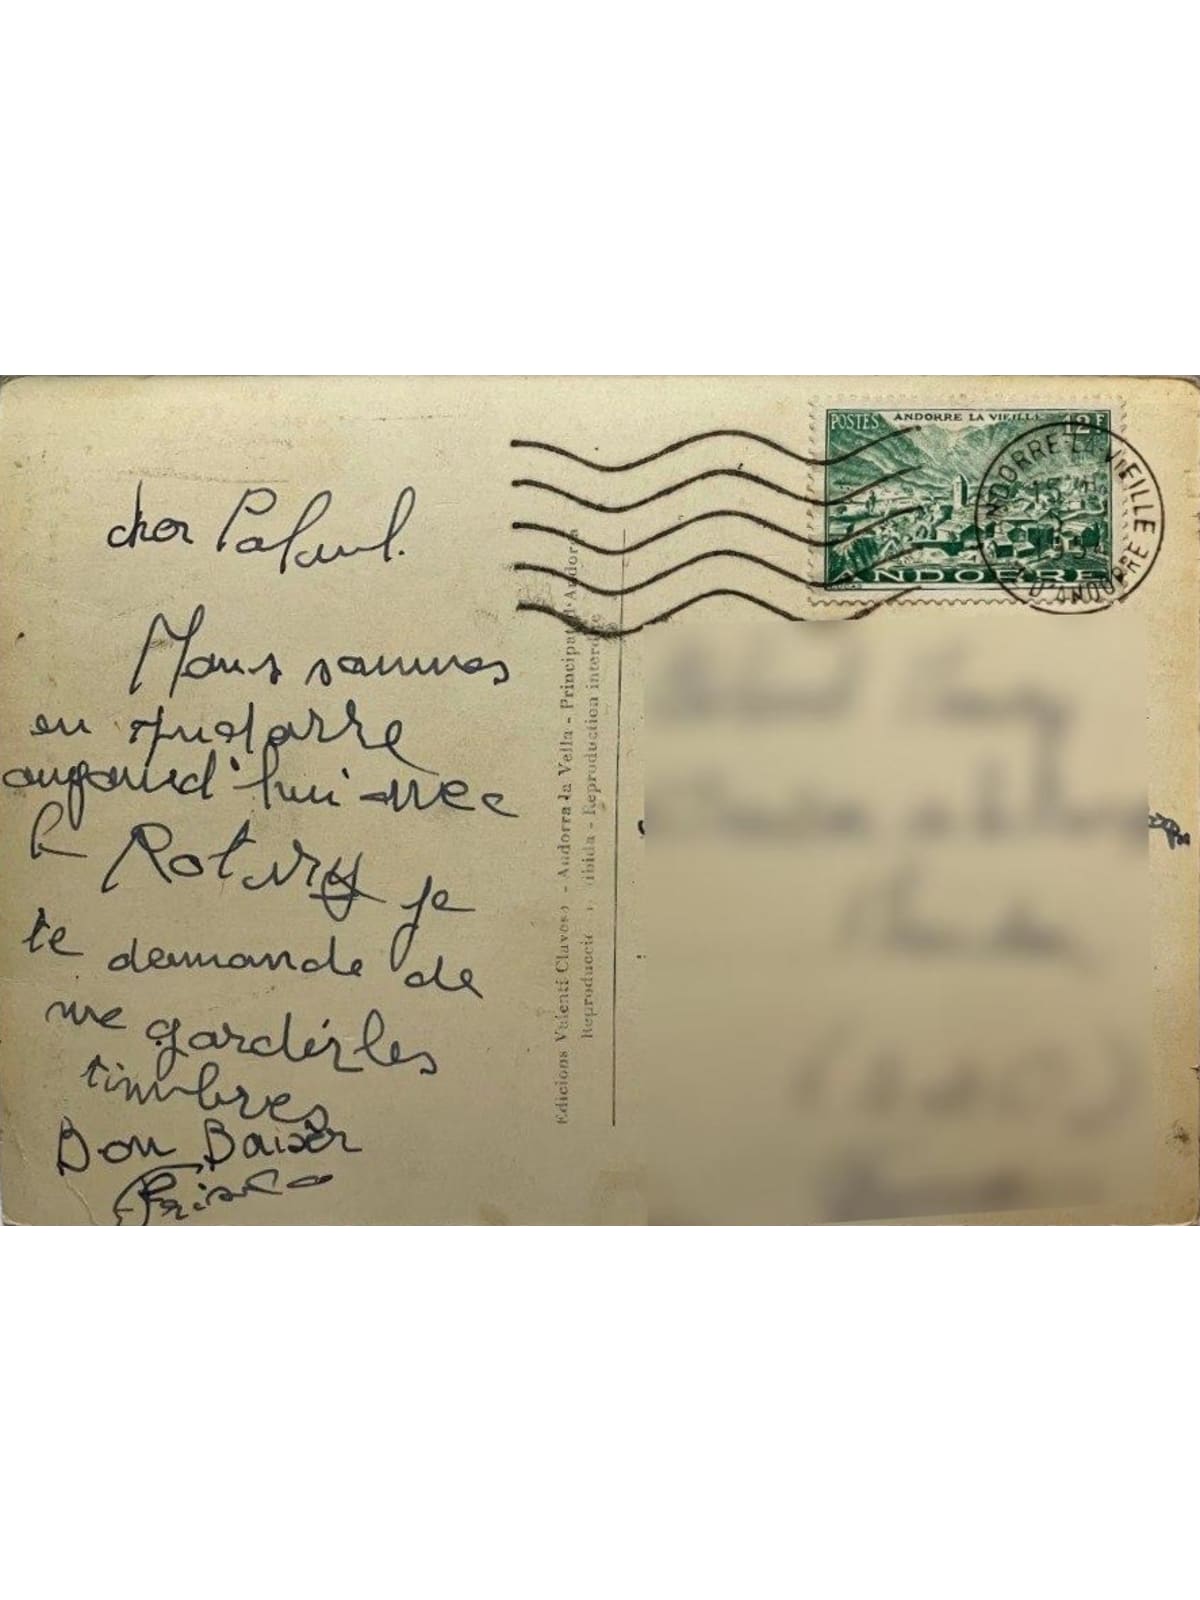 POSTES ANDORRE LA VIEILLE 12F
ANDORRE
ANDORRE-LA-VIEILLE
15
D'ANDORRE
cher
Nous sommes
en Andorre
aujourd'hui avec
le Rotary je
te demande de
me garder les
timbres
Bon Baiser
Edicions Valenti Claverol - Andorra la Vella - Principat d'Andorra
Reproducció prohibida - Reproduction interdite